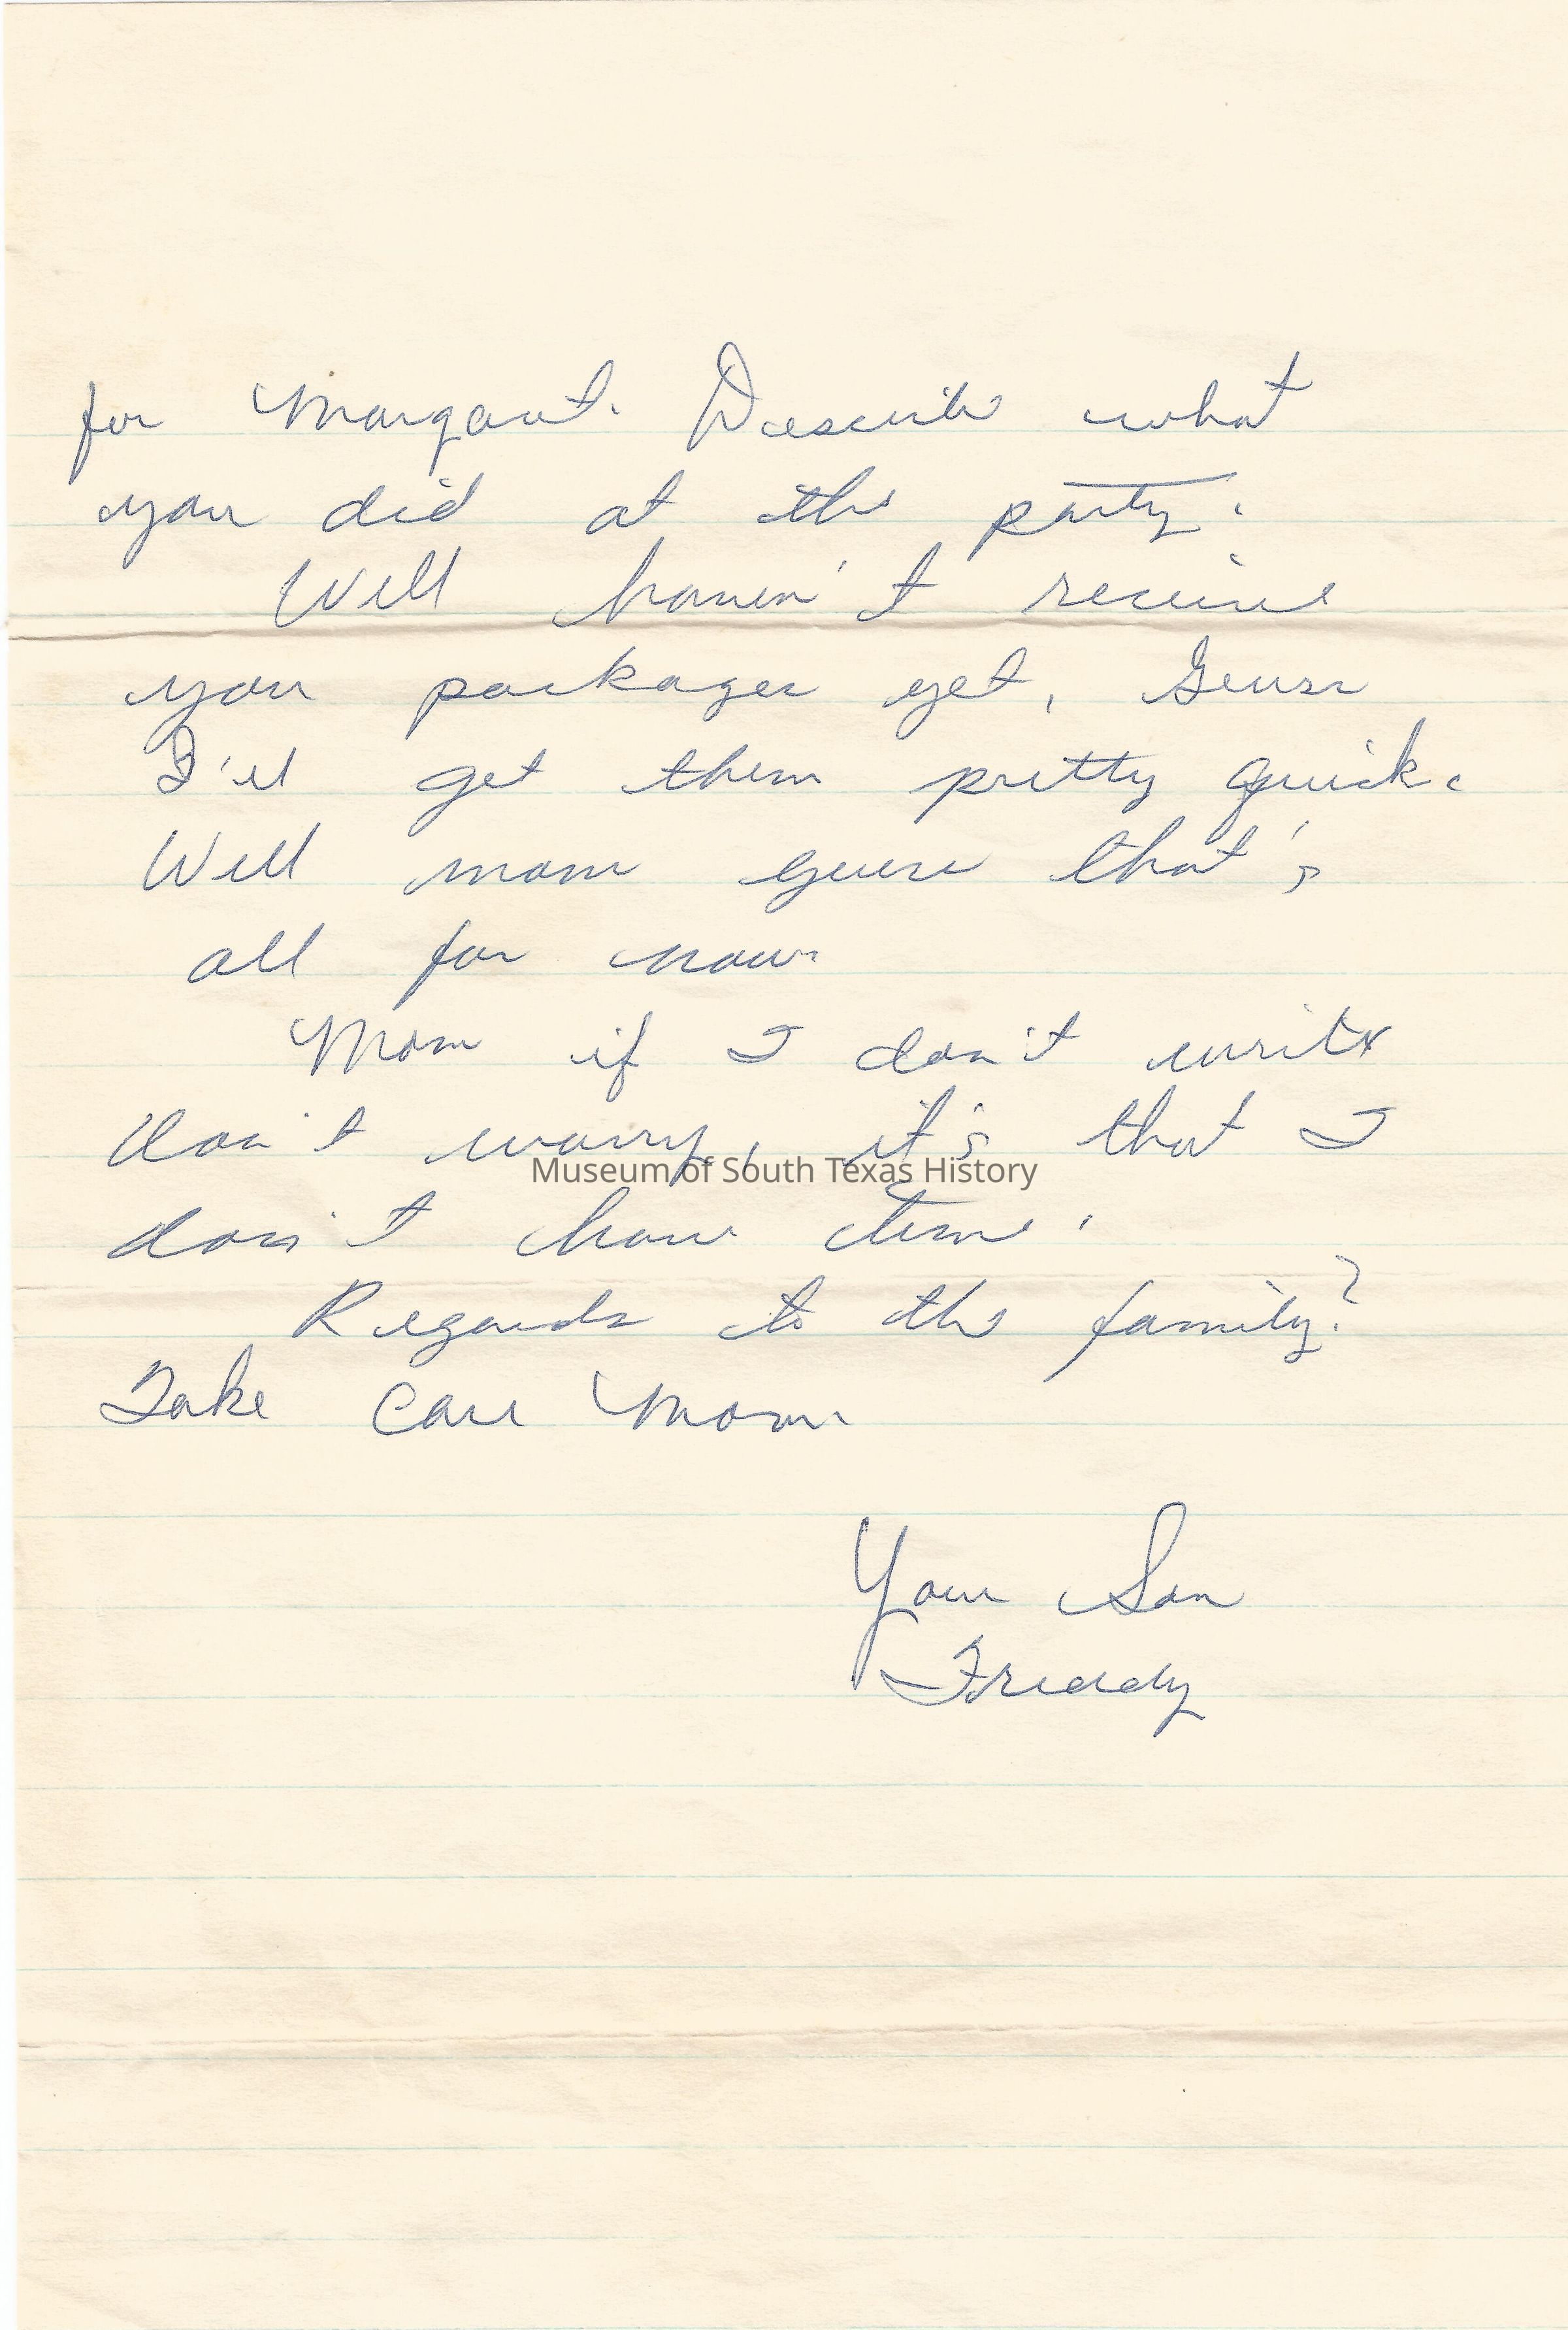 for Margaret. Describe what
you did at the party.
Well haven't receive
your packages yet, Guess
I'll get them pretty quick.
Well mom guess that's
all for now.
Mom if I don't write
don't worry, it's that I
Museum of South Texas History
don't have time.
Regards to the family?
Take Care Mom.
Your Son
Freddy